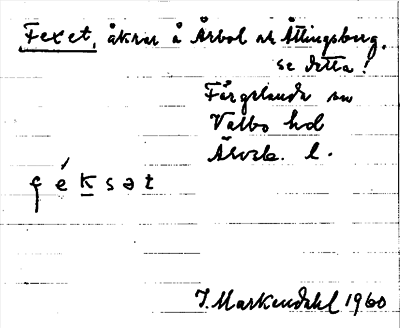 Fexet, åkrar å Årbol ok Ättingsberg,
se detta!
Färgelanda sn
Valbo hd
Älvsb. l.
f é k s ə t
J. Markendahl 1960